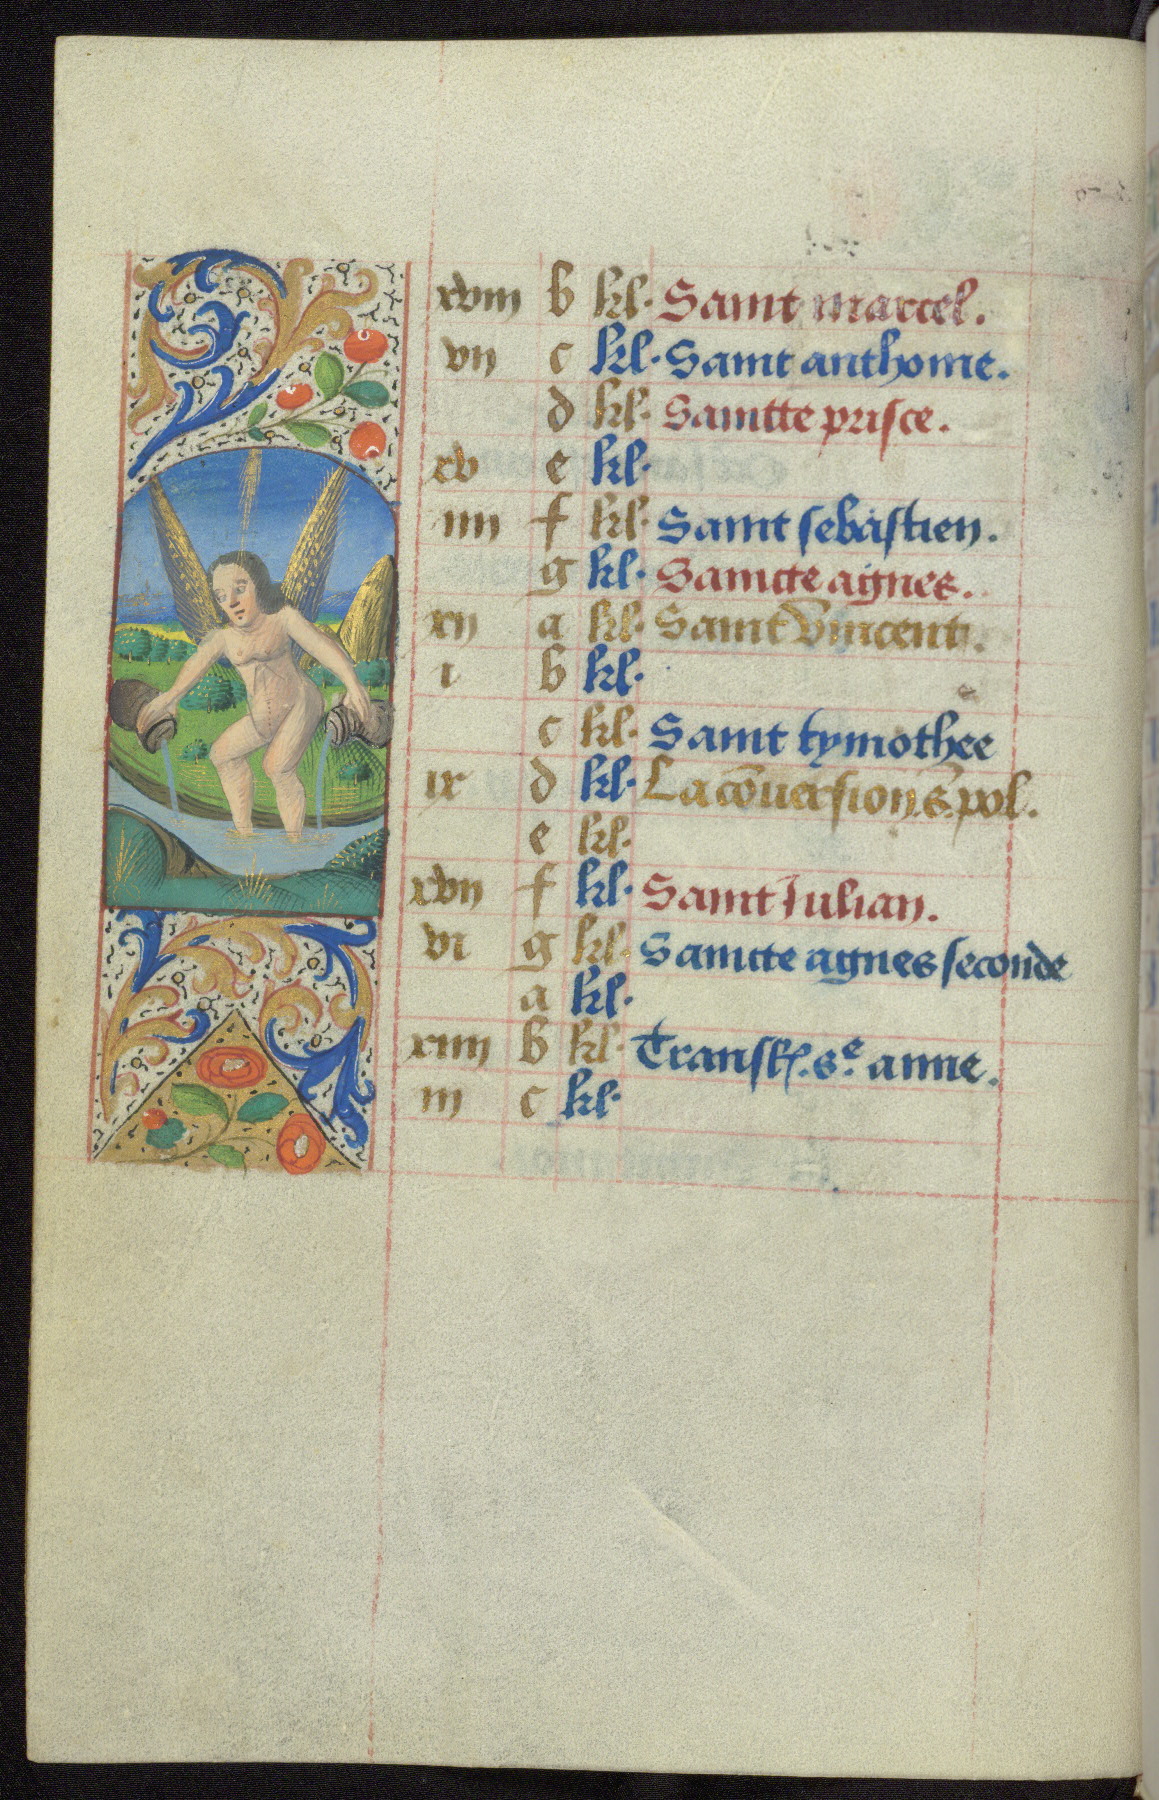 xviii b kl. Saint marcel.
vii c kl. Saint anthoine.
d kl. Saintte prisce.
xv e kl.
iiii f kl. Saint sebastien.
g kl. Saincte agnes.
xii a kl. Saint vincent.
i b kl.
c kl. Saint tymothee
ix d kl. La cōversion s. pol.
e kl.
xvii f kl. Saint Julian.
vi g kl. Saincte agnes seconde
a kl.
xiiii b kl. sᵉ. anne.
iii c kl.